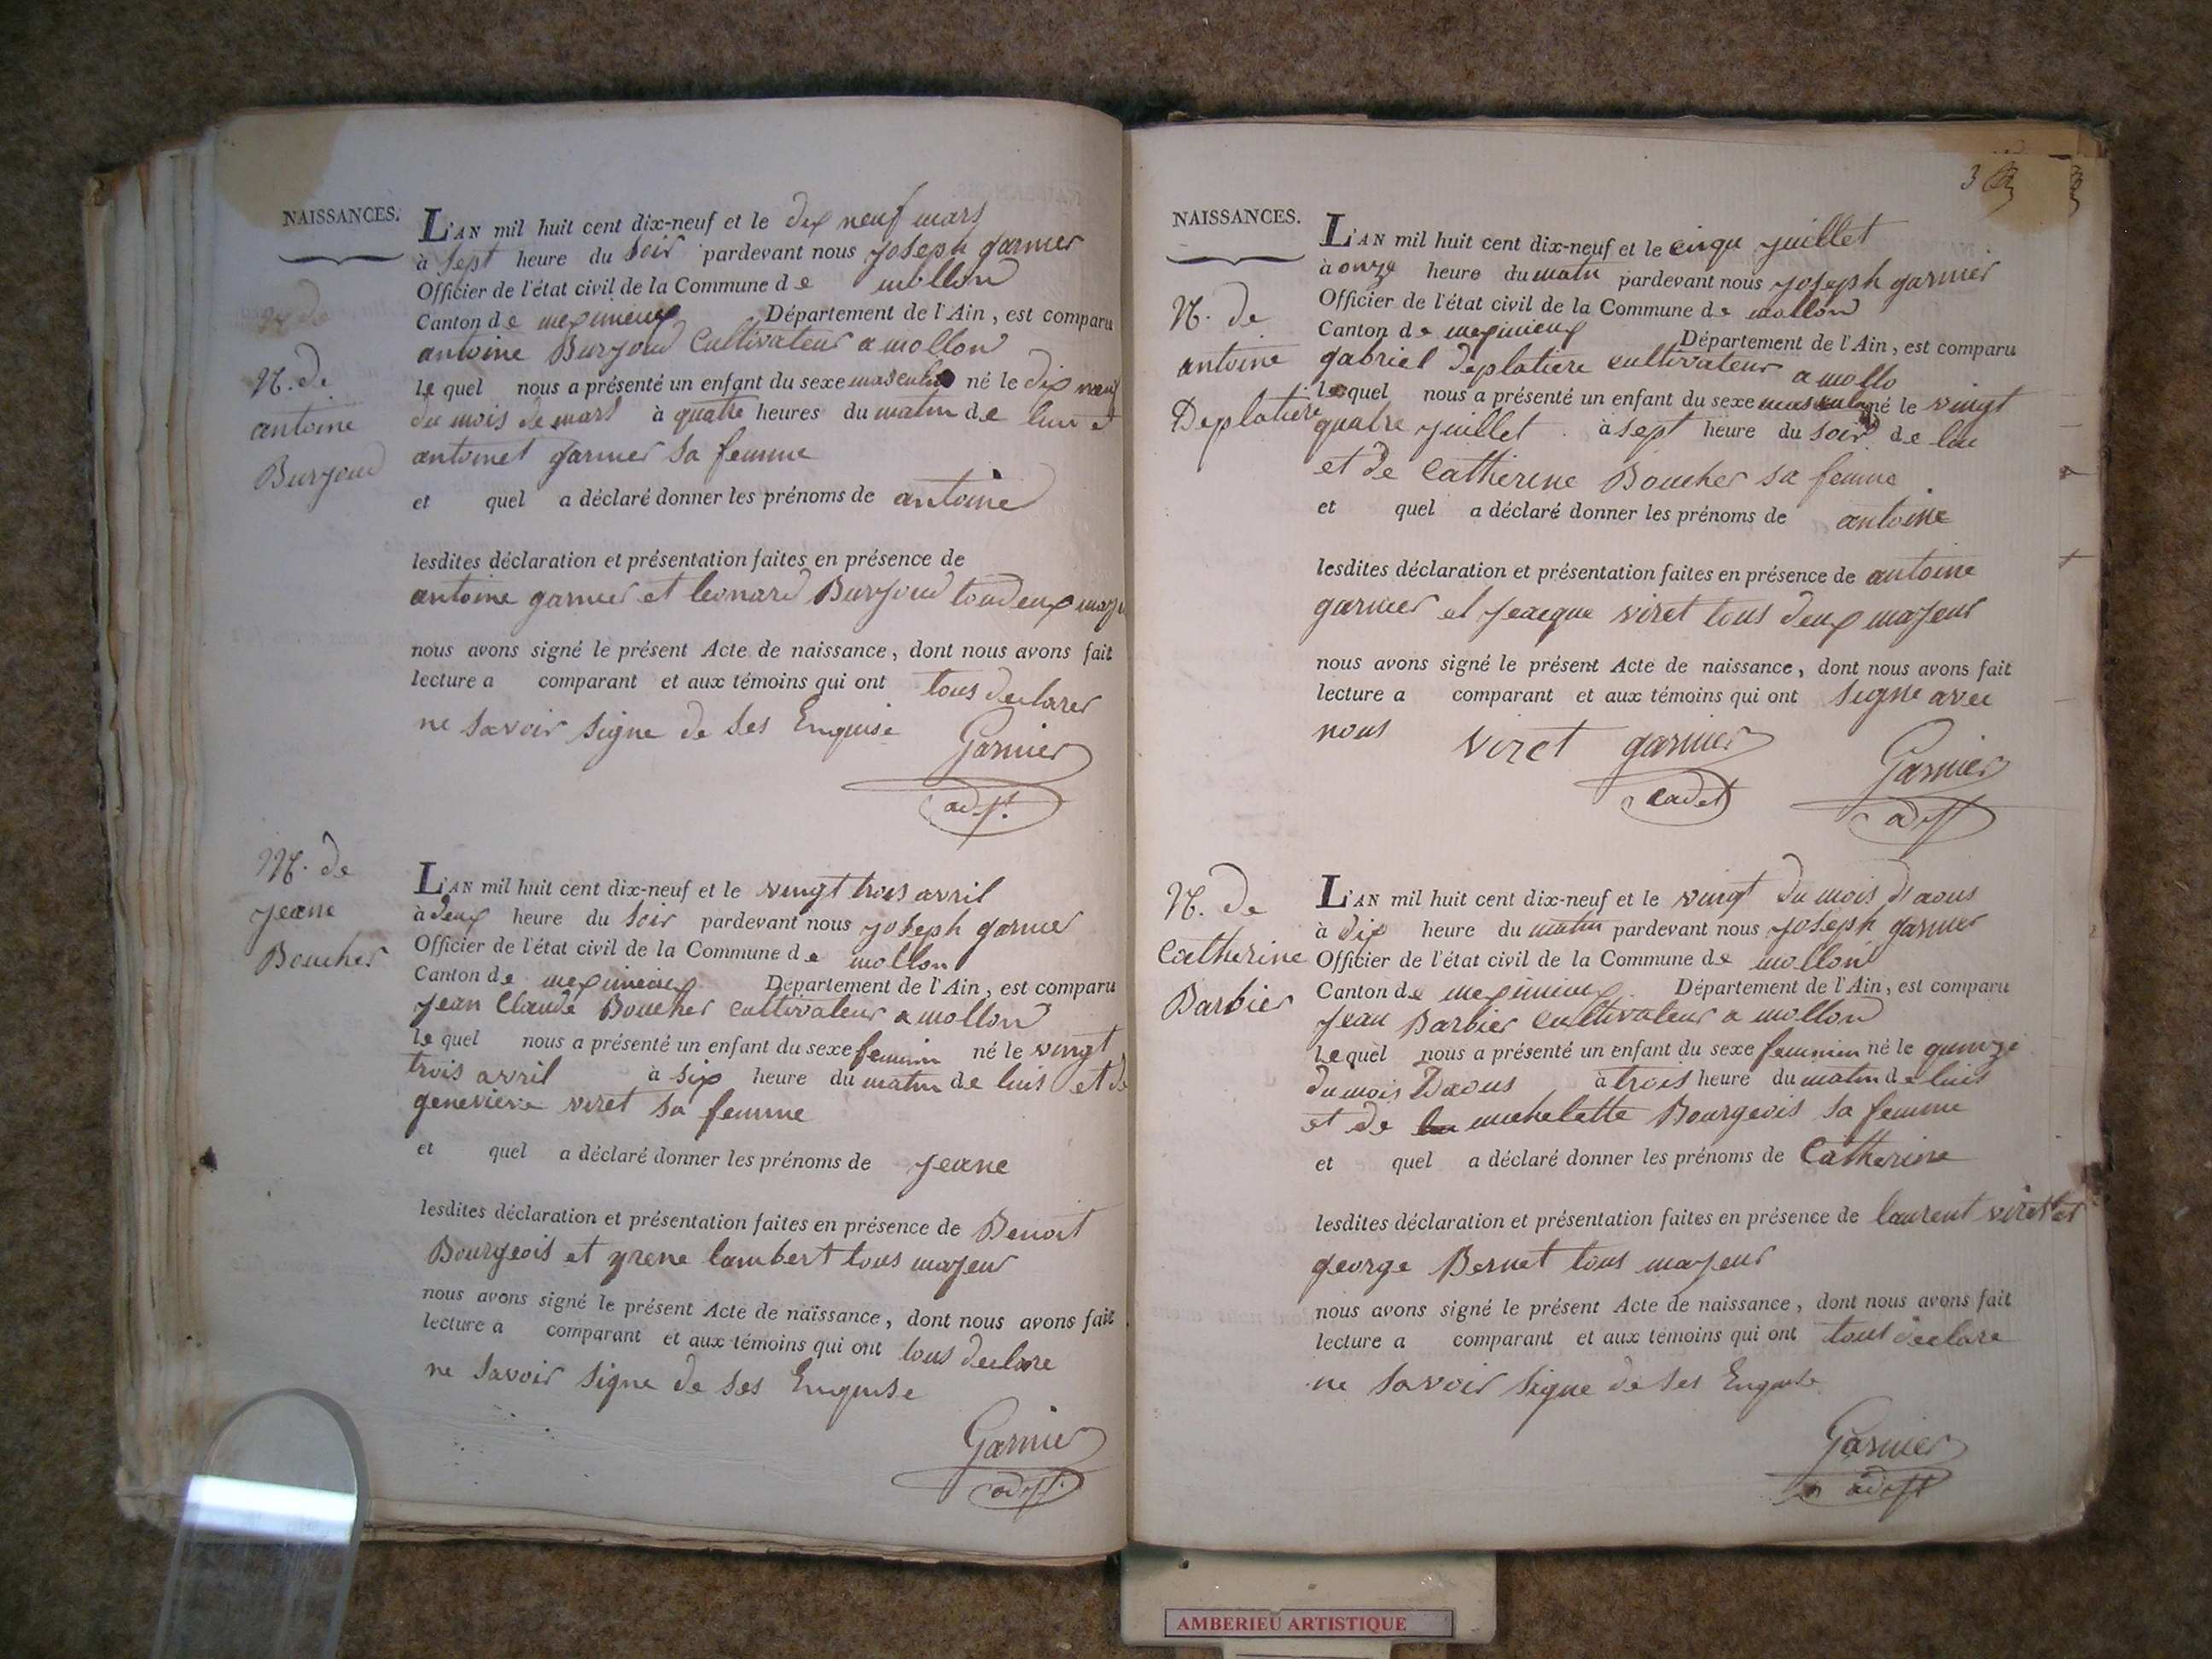 NAISSANCES.
N. de
antoine
Burjoud
L'AN mil huit cent dix-neuf et le dix neuf mars
à sept heure du soir pardevant nous joseph garnier
Officier de l'état civil de la Commune de mollon
Canton de meximieux Département de l'Ain, est comparu
antoine Burjoud Cultivateur a mollon
le quel nous a présenté un enfant du sexe masculin né le dix neuf
du mois de mars à quatre heures du matin de lui et
antoinet garnier sa femme
et quel a déclaré donner les prénoms de antoine
lesdites déclaration et présentation faites en présence de
antoine garnier et leonard Burjoud tous deux
nous avons signé le présent Acte de naissance, dont nous avons fait
lecture a comparant et aux témoins qui ont tous declarer
ne savoir signe de ses Enquise
Garnier
adjt.
N. de
jeane
Boucher
L'AN mil huit cent dix-neuf et le vingt trois avril
à deux heure du soir pardevant nous joseph garnier
Officier de l'état civil de la Commune de mollon
Canton de meximieux Département de l'Ain, est comparu
jean Claude Boucher cultivateur a mollon
le quel nous a présenté un enfant du sexe feminin né le vingt
trois avril à six heure du matin de luis et de
genevieve viret sa femme
et quel a déclaré donner les prénoms de jeane
lesdites déclaration et présentation faites en présence de Benoit
Bourgeois et yrene lambert tous majeur
nous avons signé le présent Acte de naissance, dont nous avons fait
lecture a comparant et aux témoins qui ont tous declare
ne savoir signe de ses Enquise
Garnier
adjt.
3
NAISSANCES.
N. de
antoine
Deplatiere
L'AN mil huit cent dix-neuf et le cinqu juillet
à onze heure du matin pardevant nous joseph garnier
Officier de l'état civil de la Commune de mollon
Canton de meximieux Département de l'Ain, est comparu
gabriel deplatiere cultivateur a mollo
lequel nous a présenté un enfant du sexe masculin né le vingt
quatre juillet à sept heure du soir de lui
et de Catherine Boucher sa femme
et quel a déclaré donner les prénoms de antoine
lesdites déclaration et présentation faites en présence de antoine
garnier et jeacque viret tous deux majeur
nous avons signé le présent Acte de naissance, dont nous avons fait
lecture a comparant et aux témoins qui ont signe avec
nous viret garnier Garnier
cadet adjt
N. de
Catherine
Barbier
L'AN mil huit cent dix-neuf et le vingt du mois d'aous
à dix heure du matin pardevant nous joseph garnier
Officier de l'état civil de la Commune de mollon
Canton de meximieux Département de l'Ain, est comparu
jean Barbier cultivateur a mollon
lequel nous a présenté un enfant du sexe feminin né le quinze
du mois Daous à trois heure du matin de luis
et de michelette Bourgeois sa femme
et quel a déclaré donner les prénoms de Catherine
lesdites déclaration et présentation faites en présence de laurent viret et
george Bernet tous majeur
nous avons signé le présent Acte de naissance, dont nous avons fait
lecture a comparant et aux témoins qui ont tous declare
ne savoir signe de ses Enquise
Garnier
adjt
AMBERIEU ARTISTIQUE